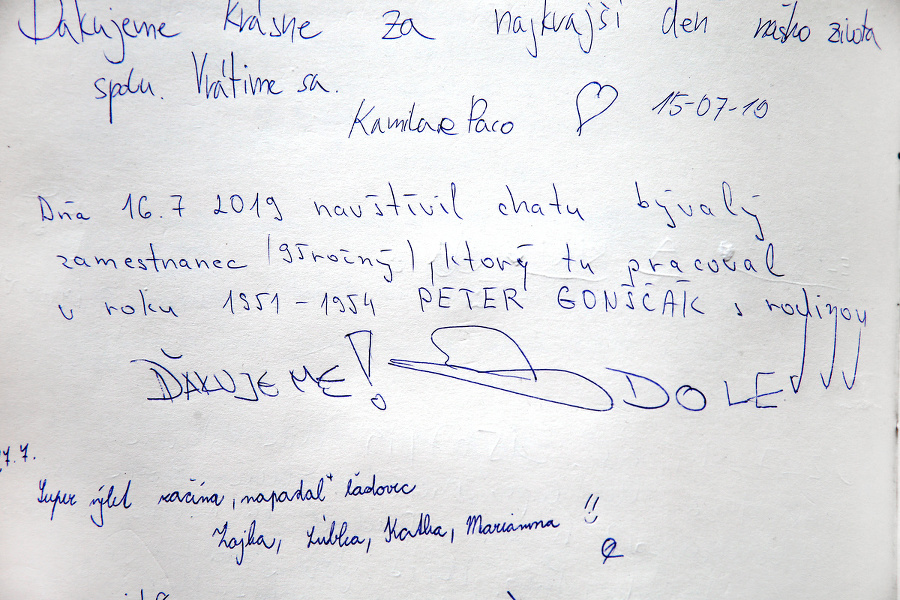 Ďakujeme krásne za najkrajší deň nášho života
spolu. Vrátime sa.
Kamila e Paco 15-07-19
Dňa 16.7 2019 navštívil chatu bývalý
zamestnanec (95ročný), ktorý tu pracoval
v roku 1951-1954 PETER GONŠČÁK s rodinou
ĎAKUJEME! DOLE
7.7.
Super výlet začína, napadal ľadovec
Zojka, Ľubka, Katka, Marianna !!